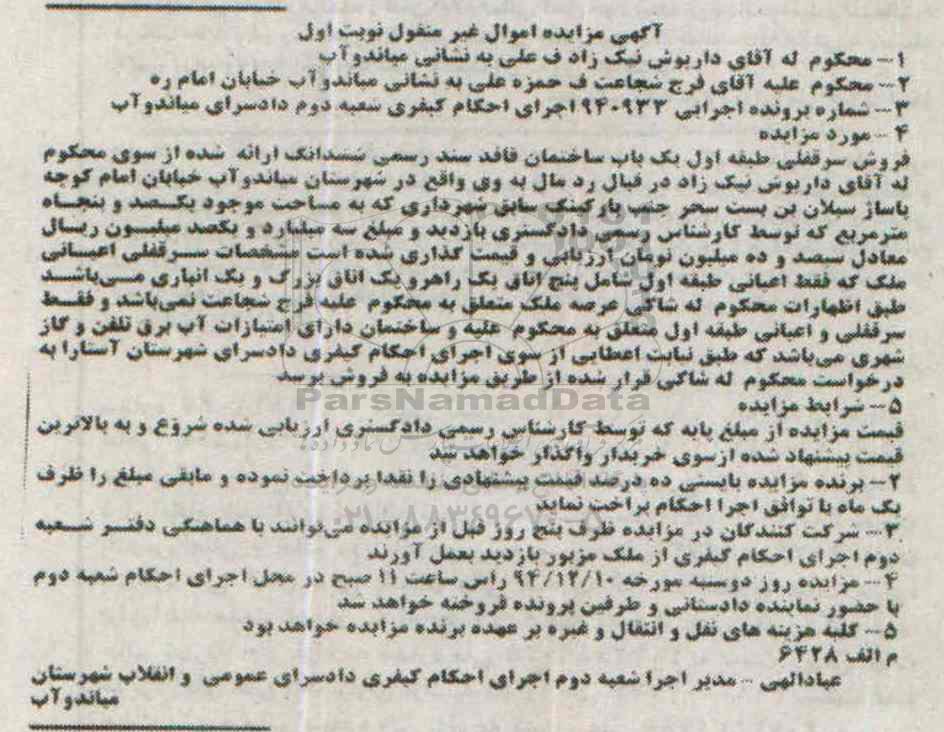 آگهی مزایده اموال غیر منقول نوبت اول
۱-- محکوم له آقای داریوش نیک زاد ف علی به نشانی میاندوآب
۲-- محکوم علیه آقای فرج شجاعت ف حمزه علی به نشانی میاندوآب خیابان امام ره
۳-- شماره پرونده اجرایی ۹۴۰۹۳۳ اجرای احکام کیفری شعبه دوم دادسرای میاندوآب
۴-- مورد مزایده
فروش سرقفلی طبقه اول یک باب ساختمان فاقد سند رسمی ششدانگ ارائه شده از سوی محکوم
له آقای داریوش نیک زاد در قبال رد مال به وی واقع در شهرستان میاندوآب خیابان امام کوچه
پاساژ سبلان بن بست سحر جنب پارکینگ سابق شهرداری که به مساحت موجود یکصد و پنجاه
مترمربع که توسط کارشناس رسمی دادگستری بازدید و مبلغ سه میلیارد و یکصد میلیون ریال
معادل سیصد و ده میلیون تومان ارزیابی و قیمت گذاری شده است مشخصات سرقفلی اعیانی
ملک که فقط اعیانی طبقه اول شامل پنج اتاق یک راهرو یک اتاق بزرگ و یک انباری می‌باشد
طبق اظهارات محکوم له شاکی عرصه ملک متعلق به محکوم علیه فرج شجاعت نمی‌باشد و فقط
سرقفلی و اعیانی طبقه اول متعلق به محکوم علیه و ساختمان دارای امتیازات آب برق تلفن و گاز
شهری می‌باشد که طبق نیابت اعطایی از سوی اجرای احکام کیفری دادسرای شهرستان آستارا به
درخواست محکوم له شاکی قرار شده از طریق مزایده به فروش برسد
ParsNamadData
۵-- شرایط مزایده
قیمت مزایده از مبلغ پایه که توسط کارشناس رسمی دادگستری ارزیابی شده شروع و به بالاترین
قیمت پیشنهاد شده ازسوی خریدار واگذار خواهد شد
۲-- برنده مزایده بایستی ده درصد قیمت پیشنهادی را نقدا پرداخت نموده و مابقی مبلغ را ظرف
یک ماه با توافق اجرا احکام پراخت نماید
۳-- شرکت کنندگان در مزایده ظرف پنج روز قبل از مزایده می‌توانند با هماهنگی دفتر شعبه
دوم اجرای احکام کیفری از ملک مزبور بازدید بعمل آورند
۴-- مزایده روز دوشنبه مورخه ۹۴/۱۲/۱۰ راس ساعت ۱۱ صبح در محل اجرای احکام شعبه دوم
با حضور نماینده دادستانی و طرفین پرونده فروخته خواهد شد
۵-- کلیه هزینه های نقل و انتقال و غیره بر عهده برنده مزایده خواهد بود
م الف ۶۴۲۸
عبادالهی -- مدیر اجرا شعبه دوم اجرای احکام کیفری دادسرای عمومی و انقلاب شهرستان
میاندوآب